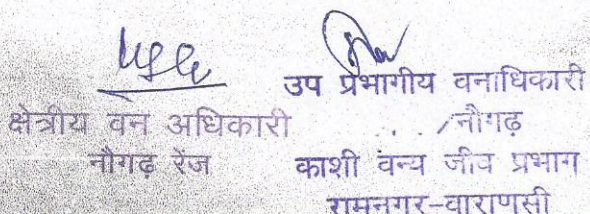 उप प्रभागीय वनाधिकारी
क्षेत्रीय वन अधिकारी
नौगढ़
नौगढ़ रेंज
काशी वन्य जीव प्रभाग
रामनगर-वाराणसी